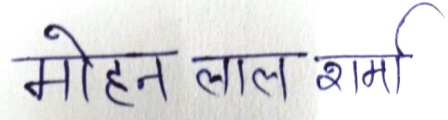 मोहन लाल शर्मा